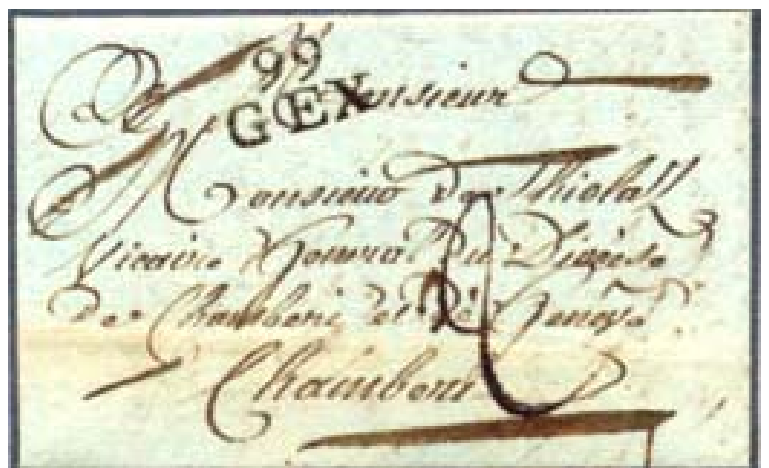 99
GEX
Monsieur
Monsieur de Thiolaz
Vicaire General du Diocise
de Chamberi et de Geneve
Chamberi